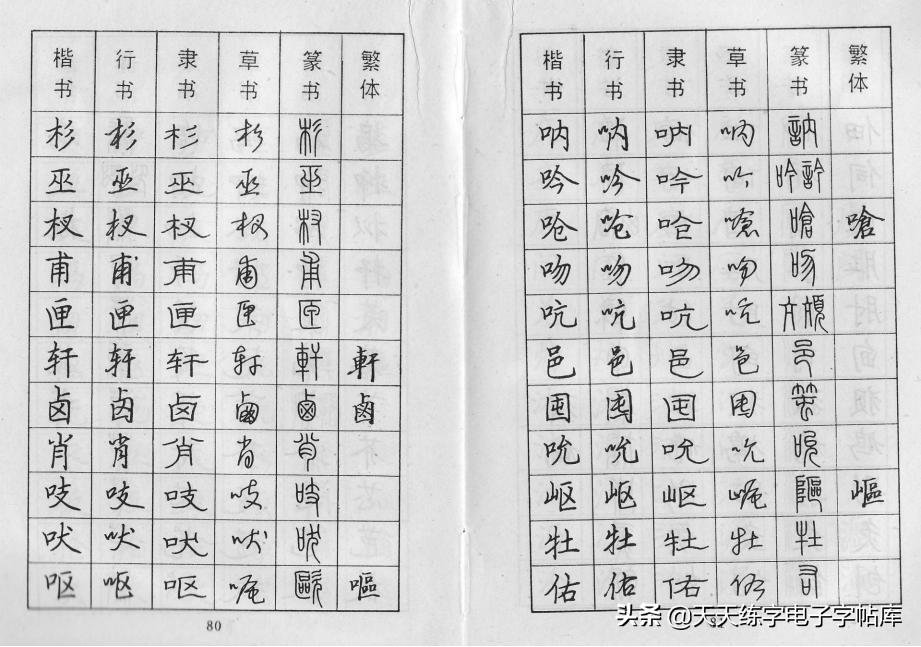 楷书 行书 隶书 草书 篆书 繁体
杉 杉 杉 杉 杉
巫 巫 巫 巫 巫
杈 杈 杈 杈 杈
甫 甫 甫 甫 甫
匣 匣 匣 匣 匣
轩 轩 轩 轩 軒 軒
卤 卤 卤 鹵 鹵 鹵
肖 肖 肖 肖 肖
吱 吱 吱 吱 吱
吠 吠 吠 吠 吠
呕 呕 呕 呕 歐 嘔
80
楷书 行书 隶书 草书 篆书 繁体
呐 呐 呐 呐 訥
吟 吟 吟 吟 吟訡
呛 呛 呛 嗆 嗆 嗆
吻 吻 吻 吻 吻
吭 吭 吭 吭 亢頏
邑 邑 邑 邑 邑
囤 囤 囤 囤
吮 吮 吮 吮 吮
岖 岖 岖 岖 嶇
牡 牡 牡 牡 牡
佑 佑 佑 佑 右
头条 @天天练字电子字帖库